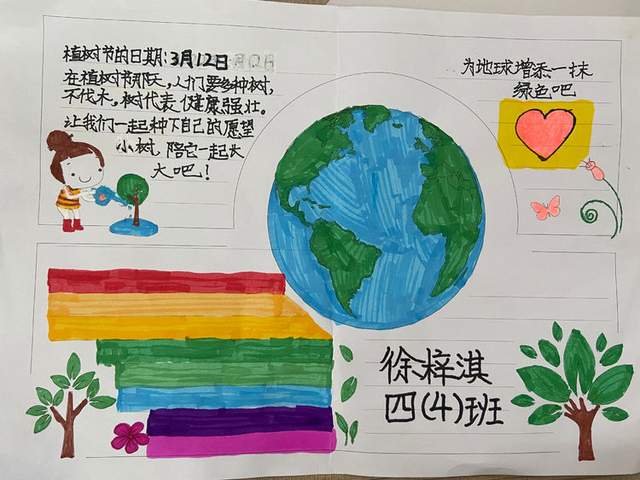 植树节的日期:3月12日
在植树节那天,人们要多种树,
不伐木。树代表健康强壮。
让我们一起种下自己的愿望
小树,陪它一起长
大吧!
为地球增添一抹
绿色吧
徐梓淇
四(4)班